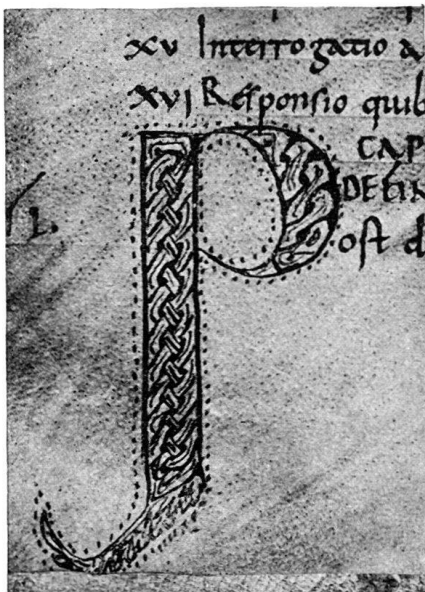 xv Interrogatio a
xvi Responsio quib
CAP
DEFIN
L.
Post d